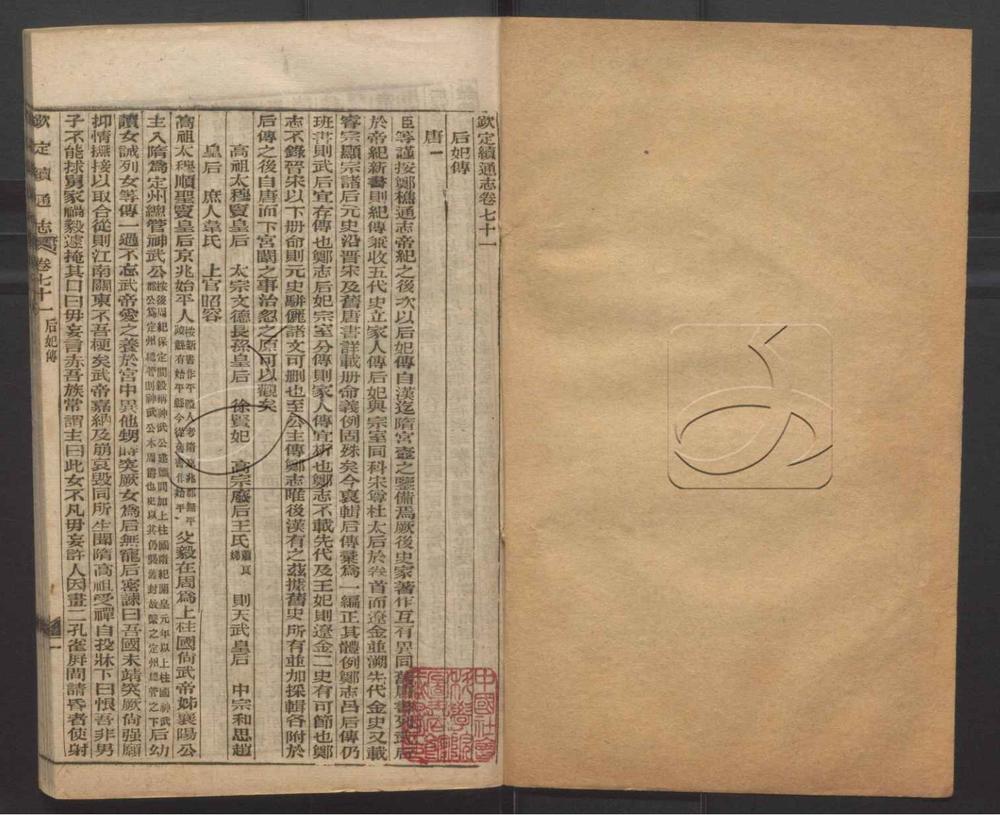 欽定續通志卷七十一
后妃傳
唐一
臣等謹按鄭樵通志帝紀之後次以后妃傳自漢迄隋宮壼之鑒備焉厥後史家著作互有異同舊唐書列武后
於帝紀新書則紀傳兼收五代史立家人傳后妃與宗室同科宋尊杜太后於卷首而遼金並溯先代金史又載
睿宗顯宗諸后元史沿晋宋及舊唐書詳載册命義例固殊矣今裒輯后傳彙為一編正其體例鄭志呂后傳仍
班書則武后宜存傳也鄭志后妃宗室分傳則家人傳宜析也鄭志不載先代及王妃則遼金二史有可節也鄭
志不錄晉宋以下册命則元史駢儷諸文可删也至公主傳鄭志唯後漢有之茲據舊史所有並加採輯各附於
后傳之後自唐而下宮闈之事治忽之原可以觀矣
高祖太穆竇皇后 太宗文德長孫皇后 徐賢妃 高宗廢后王氏 則天武皇后 中宗和思趙
皇后 庶人韋氏 上官昭容
高祖太穆順聖竇皇后京兆始平人 父毅在周為上柱國尚武帝姊襄陽公
主入隋為定州總管神武公 后幼
讀女誡列女等傳一過不忘武帝愛之養於宮中異他甥時突厥女為后無寵后密諫曰吾國未靖突厥尚强願
抑情撫接以取合從則江南關東不吾梗矣武帝嘉納及崩哀毀同所生聞隋高祖受禪自投牀下曰恨吾非男
子不能捄舅家禍毅遽掩其口曰毋妄言赤吾族常謂主曰此女不凡毋妄許人因畫二孔雀屏間請昏者使射
欽定續通志 卷七十一 后妃傳 一